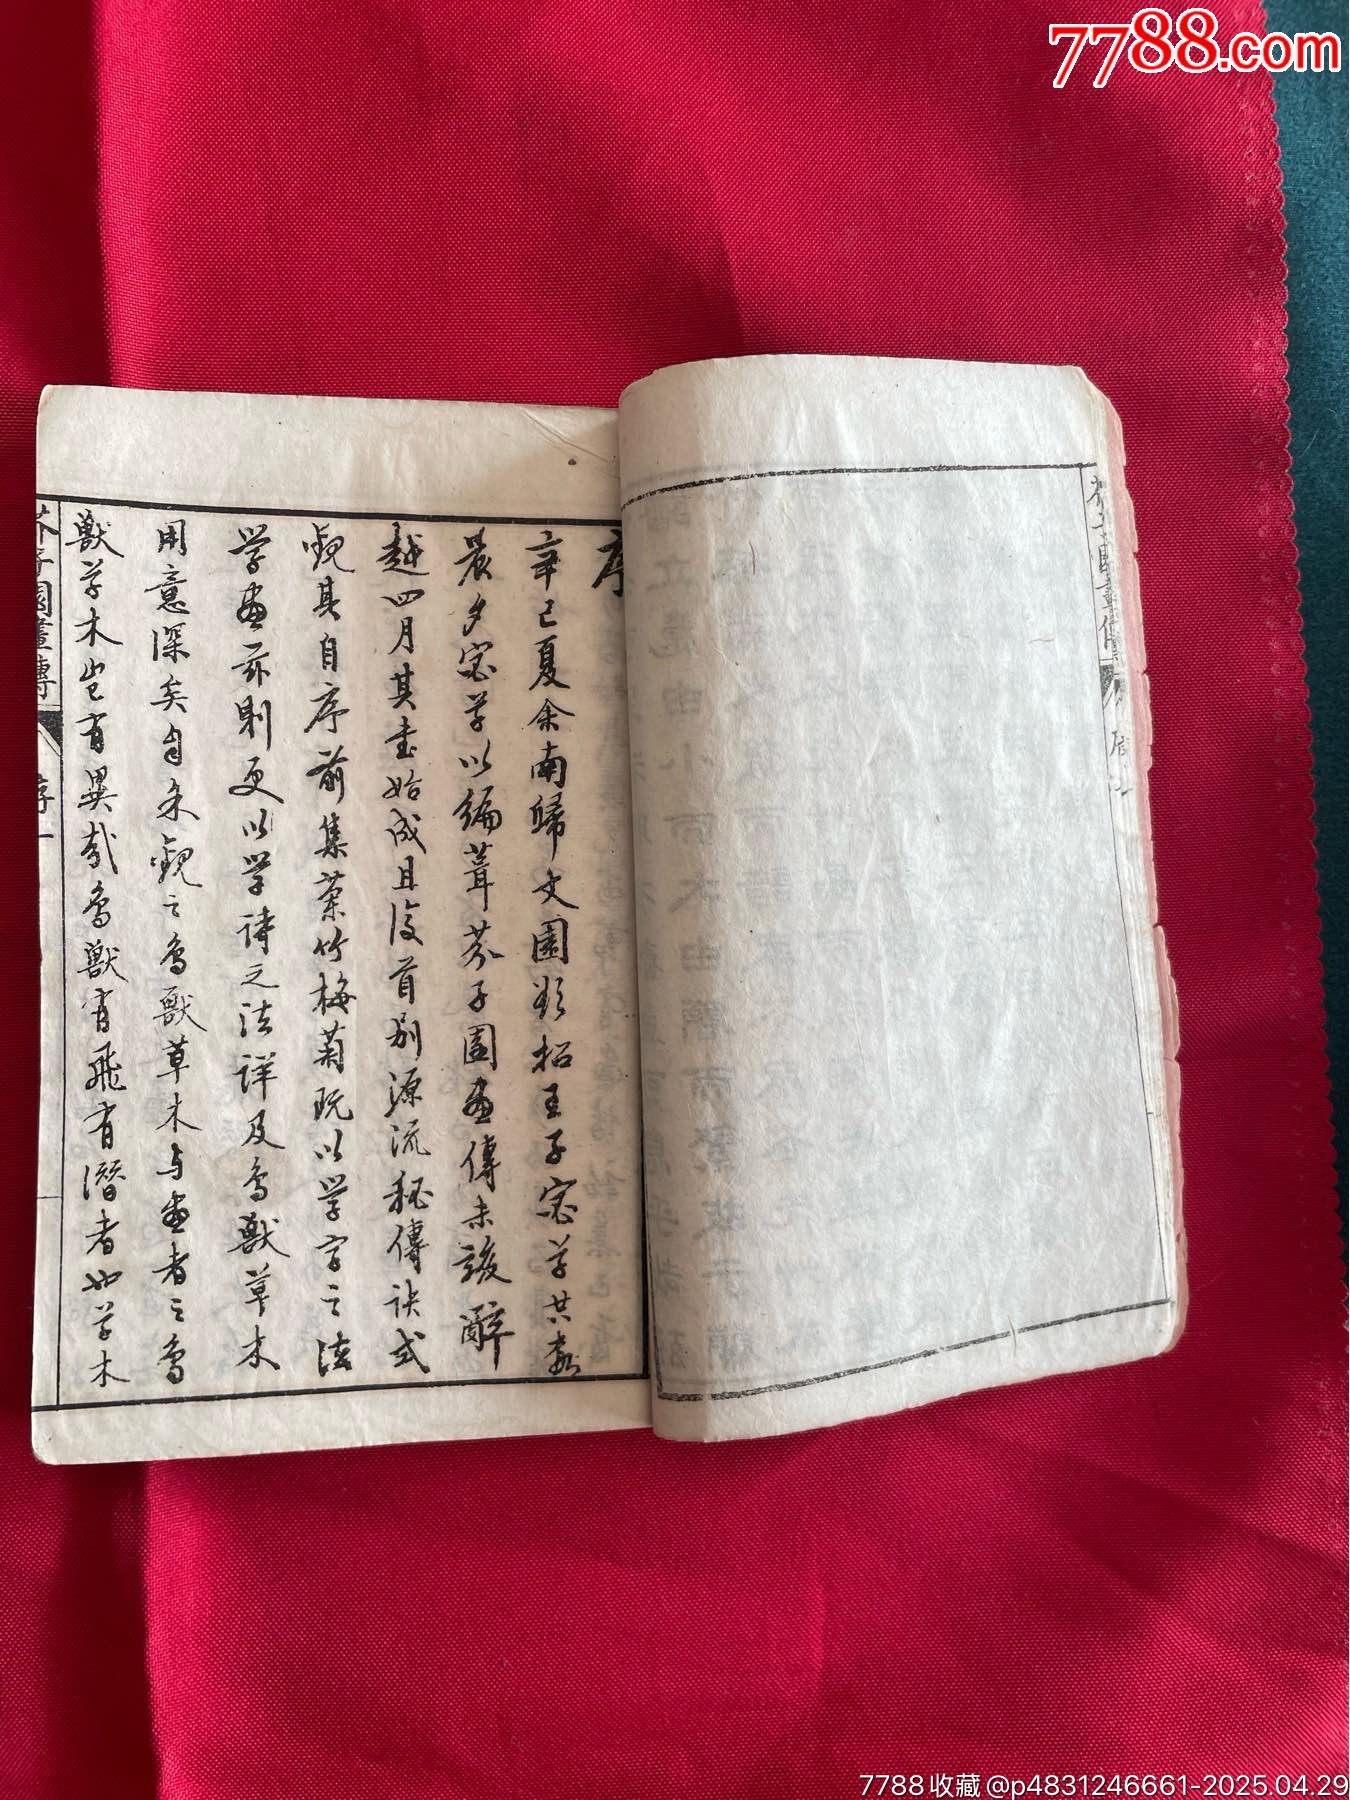 7788.com
序
辛巳夏余南歸文園欣招王子宓草共數
晨夕宓草以編葺芥子園畫傳未竣辭
越四月其書始成且後首别源流秘傳訣式
觀其自序前集蘭竹梅菊玩以學字之法
學畫玆則更以學詩之法詳及鳥獸草木
用意深矣自余觀之鳥獸草木与畫者之鳥
獸草木豈有異哉鳥獸有飛有潛者也草木
芥子園畫傳 序 一
7788收藏@p4831246661-2025.04.29